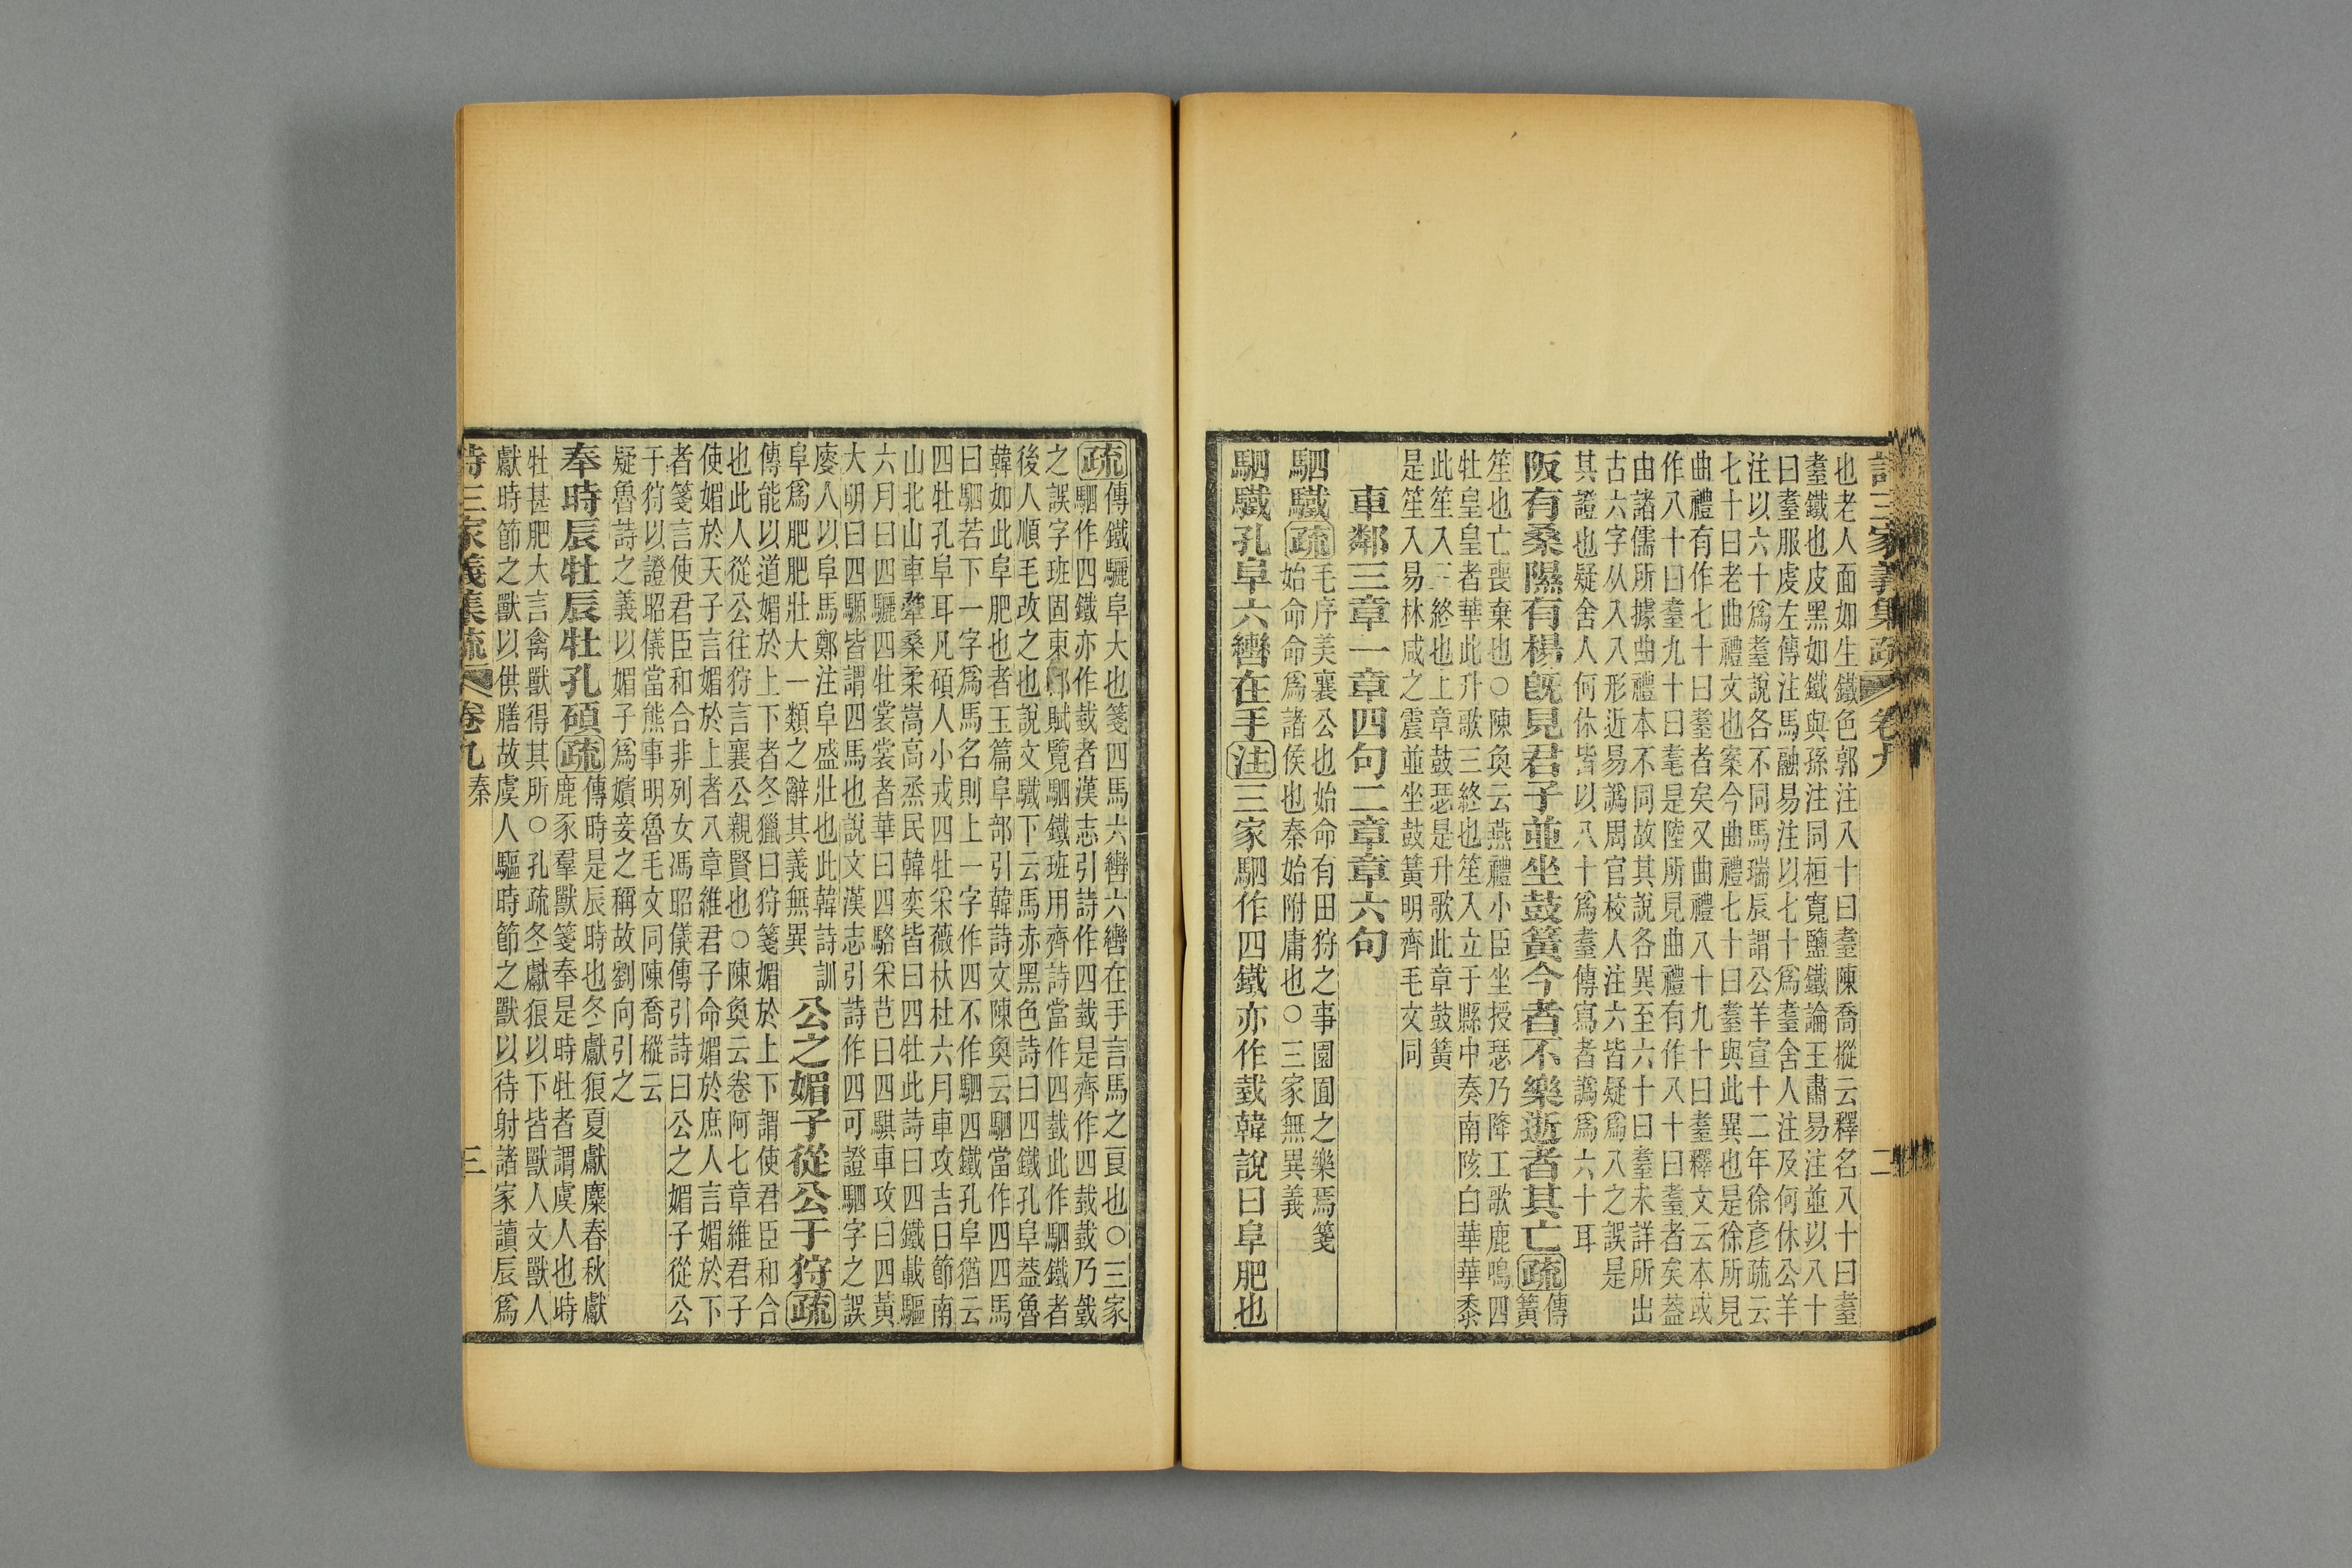 詩三家義集疏 卷九 二
也老人面如生鐵色郭注八十曰耋陳喬樅云釋名八十曰耋
耋鐵也皮黑如鐵與孫注同桓寬鹽鐵論王肅易注並以八十
曰耋服虔左傳注馬融易注以七十爲耋舍人注及何休公羊
注以六十爲耋說各不同馬瑞辰謂公羊宣十二年徐彥疏云
七十曰老曲禮文也案今曲禮七十曰耋與此異也是徐所見
曲禮有作七十曰耋者矣又曲禮八十九十曰耋釋文云本或
作八十曰耋九十曰耄是陸所見曲禮有作八十曰耋者矣蓋
由諸儒所據曲禮本不同故其說各異至六十曰耋未詳所出
古六字从入八形近易譌周官校人注六皆疑爲八之誤是
其證也疑舍人何休皆以八十爲耋傳寫者譌爲六十耳
阪有桑隰有楊旣見君子並坐鼓簧今者不樂逝者其亡疏傳
簧
笙也亡喪棄也○陳奐云燕禮小臣坐授瑟乃降工歌鹿鳴四
牡皇皇者華此升歌三終也笙入立于縣中奏南陔白華華黍
此笙入三終也上章鼓瑟是升歌此章鼓簧
是笙入易林咸之震並坐鼓簧明齊毛文同
車鄰三章一章四句二章章六句
駟驖疏毛序美襄公也始命有田狩之事園囿之樂焉箋
始命命爲諸侯也秦始附庸也○三家無異義
駟驖孔阜六轡在手注三家駟作四鐵亦作䥫韓說曰阜肥也
疏傳鐵驪阜大也箋四馬六轡六轡在手言馬之良也○三家
駟作四鐵亦作䥫者漢志引詩作四䥫是齊作四䥫䥫乃鐵
之誤字班固東都賦覽駟鐵班用齊詩當作四䥫此作駟鐵者
後人順毛改之也說文驖下云馬赤黑色詩曰四鐵孔阜蓋魯
韓如此阜肥也者玉篇阜部引韓詩文陳奐云駟當作四四馬
曰駟若下一字爲馬名則上一字作四不作駟四鐵孔阜猶云
四牡孔阜耳凡碩人小戎四牡采薇杕杜六月車攻吉日節南
山北山車舝桑柔嵩高烝民韓奕皆曰四牡此詩曰四鐵載驅
六月曰四驪四牡裳裳者華曰四駱采芑曰四騏車攻曰四黃
大明曰四騵皆謂四馬也說文漢志引詩作四可證駟字之誤
廋人以阜馬鄭注阜盛壯也此韓詩訓
阜爲肥肥壯大一類之辭其義無異 公之媚子從公于狩疏
傳能以道媚於上下者冬獵曰狩箋媚於上下謂使君臣和合
也此人從公往狩言襄公親賢也○陳奐云卷阿七章維君子
使媚於天子言媚於上者八章維君子命媚於庶人言媚於下
者箋言使君臣和合非列女馮昭儀傳引詩曰公之媚子從公
于狩以證昭儀當熊事明魯毛文同陳喬樅云
疑魯詩之義以媚子爲嬪妾之稱故劉向引之
奉時辰牡辰牡孔碩疏傳時是辰時也冬獻狼夏獻麋春秋獻
鹿豕羣獸箋奉是時牡者謂虞人也時
牡甚肥大言禽獸得其所○孔疏冬獻狼以下皆獸人文獸人
獻時節之獸以供膳故虞人驅時節之獸以待射諸家讀辰爲
詩三家義集疏 卷九 秦 三